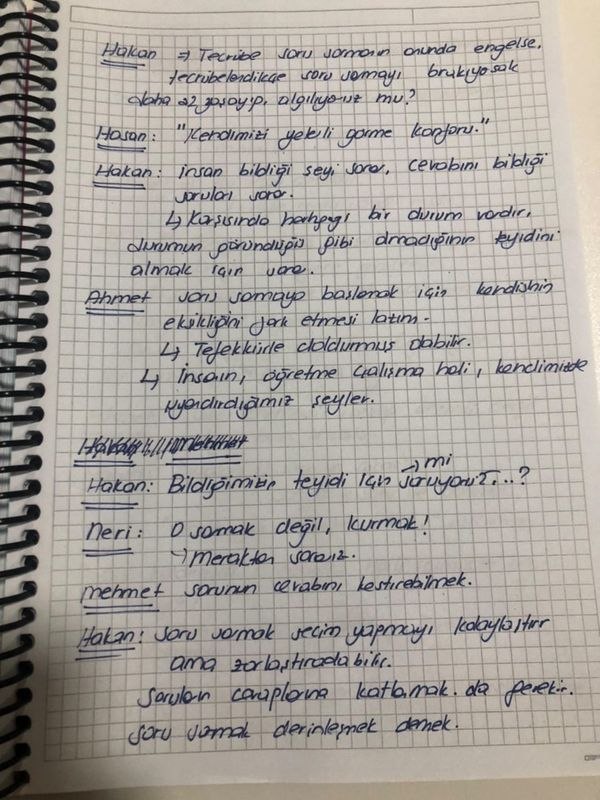 Hakan ⇒ Tecrübe soru sormanın onunda engelse,
tecrübelendikçe soru sormayı bırakıyorsak
daha az yaşayıp, algılıyoruz mu?
Hasan: "Kendimizi yeterli görme konforu."
Hakan: insan bildiği şeyi sorar, cevabını bildiği
soruları sorar.
↳ Karşısında herhangi bir durum vardır,
durumun göründüğü gibi olmadığının teyidini
almak için sorar.
Ahmet soru sormaya başlamak için kendisinin
eksikliğini fark etmesi lazım.
↳ Tefekkürle doldurmuş olabilir.
↳ İnsanın, öğretme çalışma hali, kendimizde
uyandırdığımız şeyler.
Hakan: Bildiğimizin teyidi için mi soruyoruz...?
Neri: O sormak değil, kurmak!
↳ Meraktan sorarız.
mehmet sorunun cevabını kestirebilmek.
Hakan: soru sormak seçim yapmayı kolaylaştırır
ama zorlaştırada bilir.
Soruların cevaplarına katlanmak da gerekir.
Soru sormak derinleşmek demek.